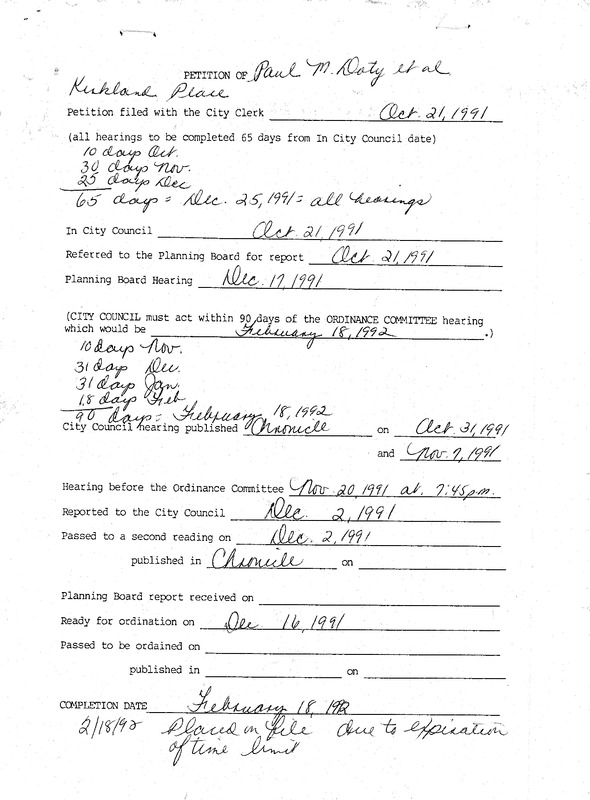 PETITION OF Paul M. Doty et al
Kirkland Place
Petition filed with the City Clerk Oct. 21, 1991
(all hearings to be completed 65 days from In City Council date)
10 days Oct.
30 days Nov.
25 days Dec
65 days = Dec. 25, 1991 = all hearings
In City Council Oct. 21, 1991
Referred to the Planning Board for report Oct. 21, 1991
Planning Board Hearing Dec. 17, 1991
(CITY COUNCIL must act within 90 days of the ORDINANCE COMMITTEE hearing
which would be February 18, 1992 .)
10 days Nov.
31 days Dec.
31 days Jan.
18 days Feb
90 days = February 18, 1992
City Council hearing published Chronicle on Oct 31, 1991
and Nov. 7, 1991
Hearing before the Ordinance Committee Nov. 20 1991 at. 7:45 p.m.
Reported to the City Council Dec. 2, 1991
Passed to a second reading on Dec. 2, 1991
published in Chronicle on
Planning Board report received on
Ready for ordination on Dec. 16, 1991
Passed to be ordained on
published in on
COMPLETION DATE February 18, 1992
2/18/92 Placed on file due to expiration
of time limit